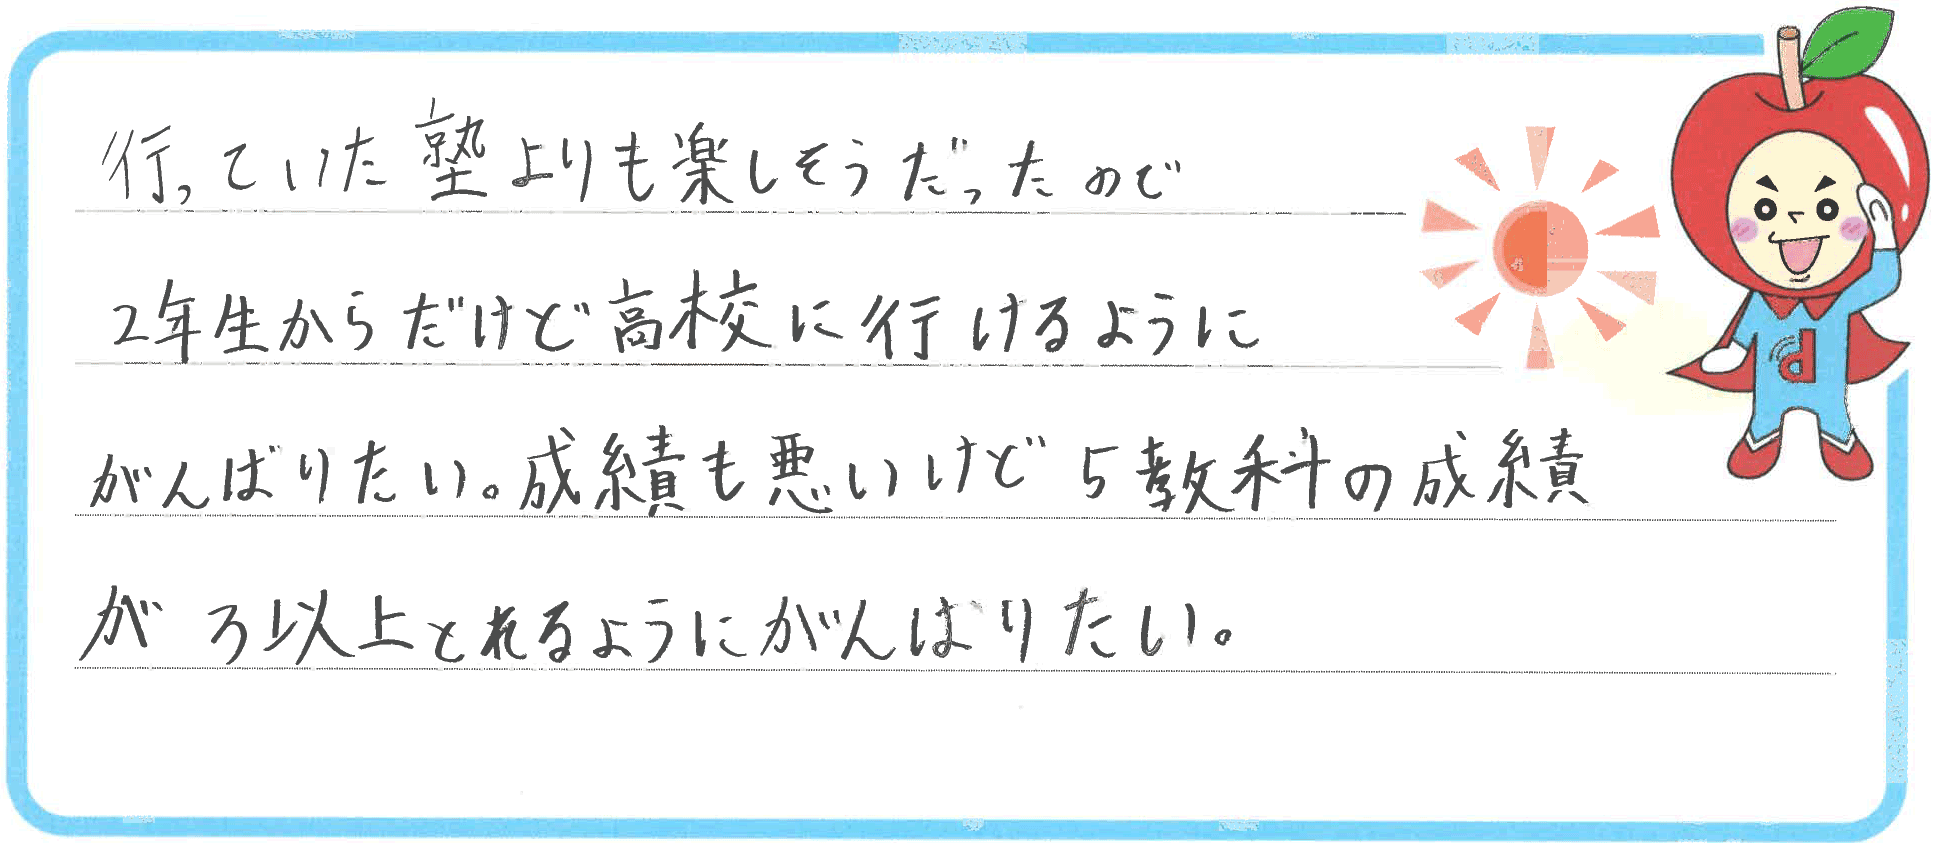 行っていた塾よりも楽しそうだったので
2年生からだけど高校に行けるように
がんばりたい。成績も悪いけど5教科の成績
が3以上とれるようにがんばりたい。
d